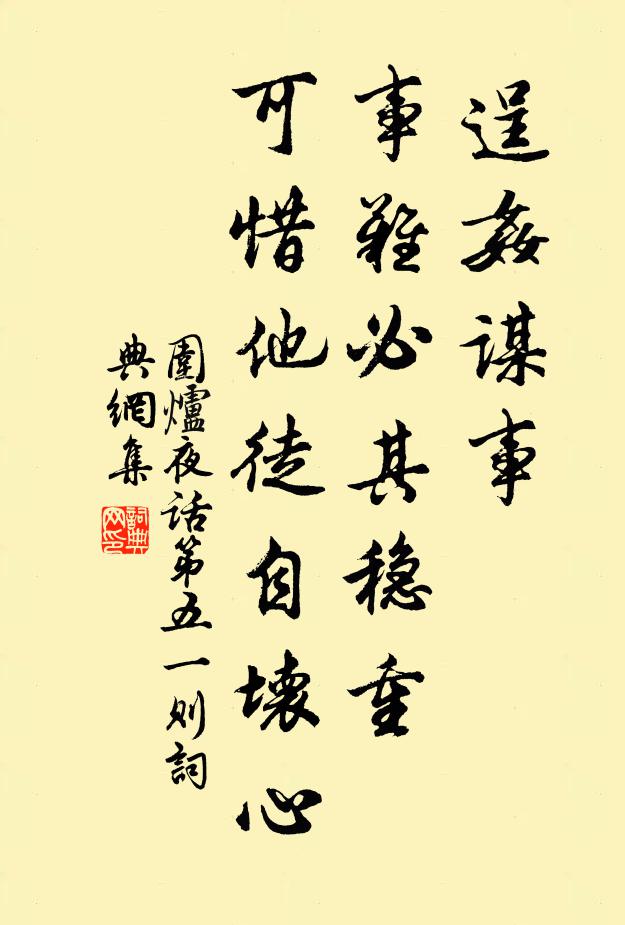 逞姦謀事
事難必其穏重
可惜他徒自壞心
圍爐夜话第五一则詞
典網集
詞典
网印